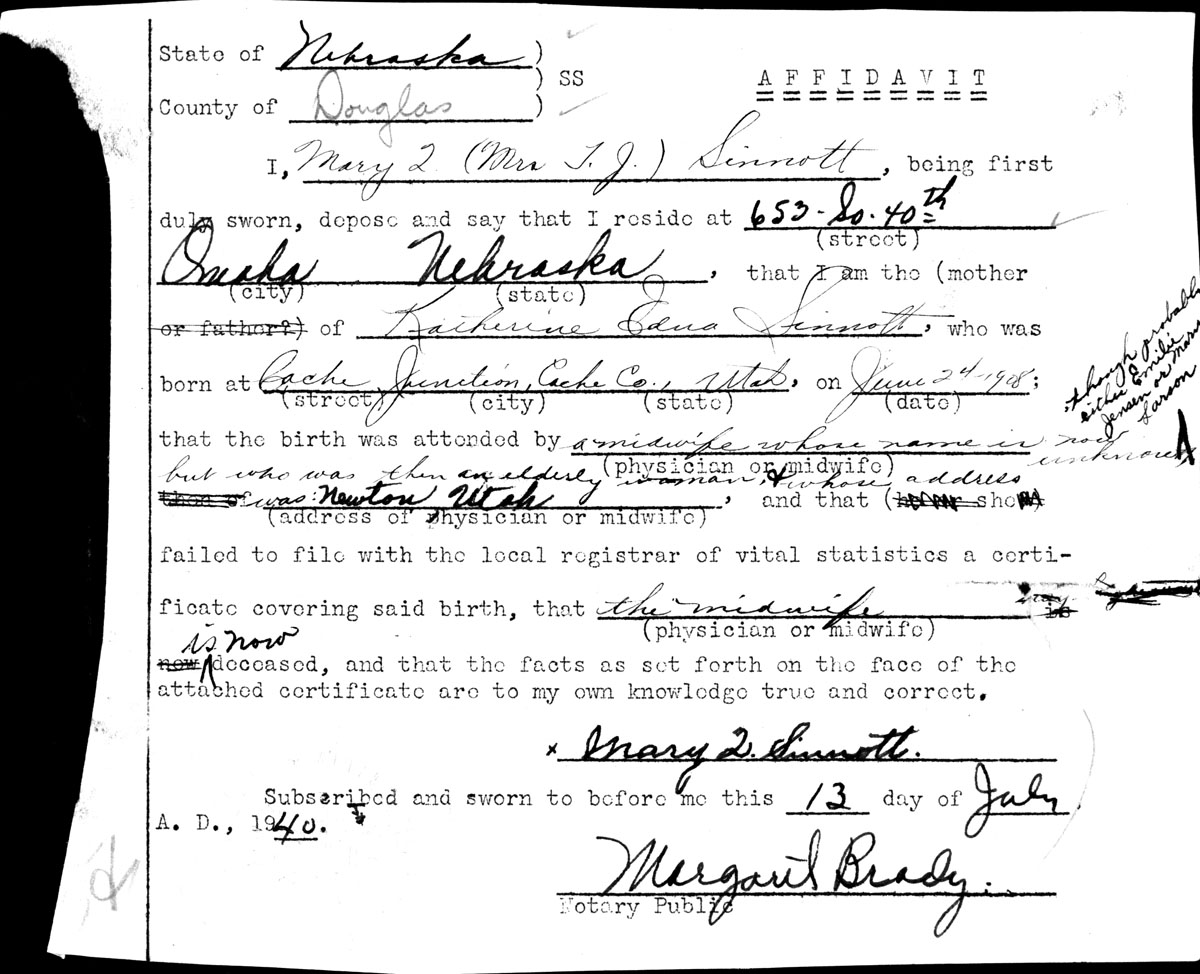 State of Nebraska )
) SS
A F F I D A V I T
County of Douglas )
I, Mary Q (Mrs T. J.) Sinnott, being first
duly sworn, depose and say that I reside at 653-So-40th
(street)
Omaha Nebraska, that I am the (mother
(city) (state)
or father?) of Katherine Edna Sinnott, who was
born at Cache Junction, Cache Co., Utah, on June 24-1908;
(street) (city) (state) (date)
though probably
either Emilie
Jensen or
Larson
that the birth was attended by a midwife whose name is now unknown
(physician or midwife)
but who was then an elderly woman, & whose address
was: Newton Utah, and that ( she
(address of physician or midwife)
failed to file with the local registrar of vital statistics a certi-
ficate covering said birth, that the midwife is
(physician or midwife)
is now
now deceased, and that the facts as set forth on the face of the
attached certificate are to my own knowledge true and correct.
x Mary Q. Sinnott.
Subscribed and sworn to before me this 13 day of July
A. D., 1940.
Margaret Brady.
Notary Public